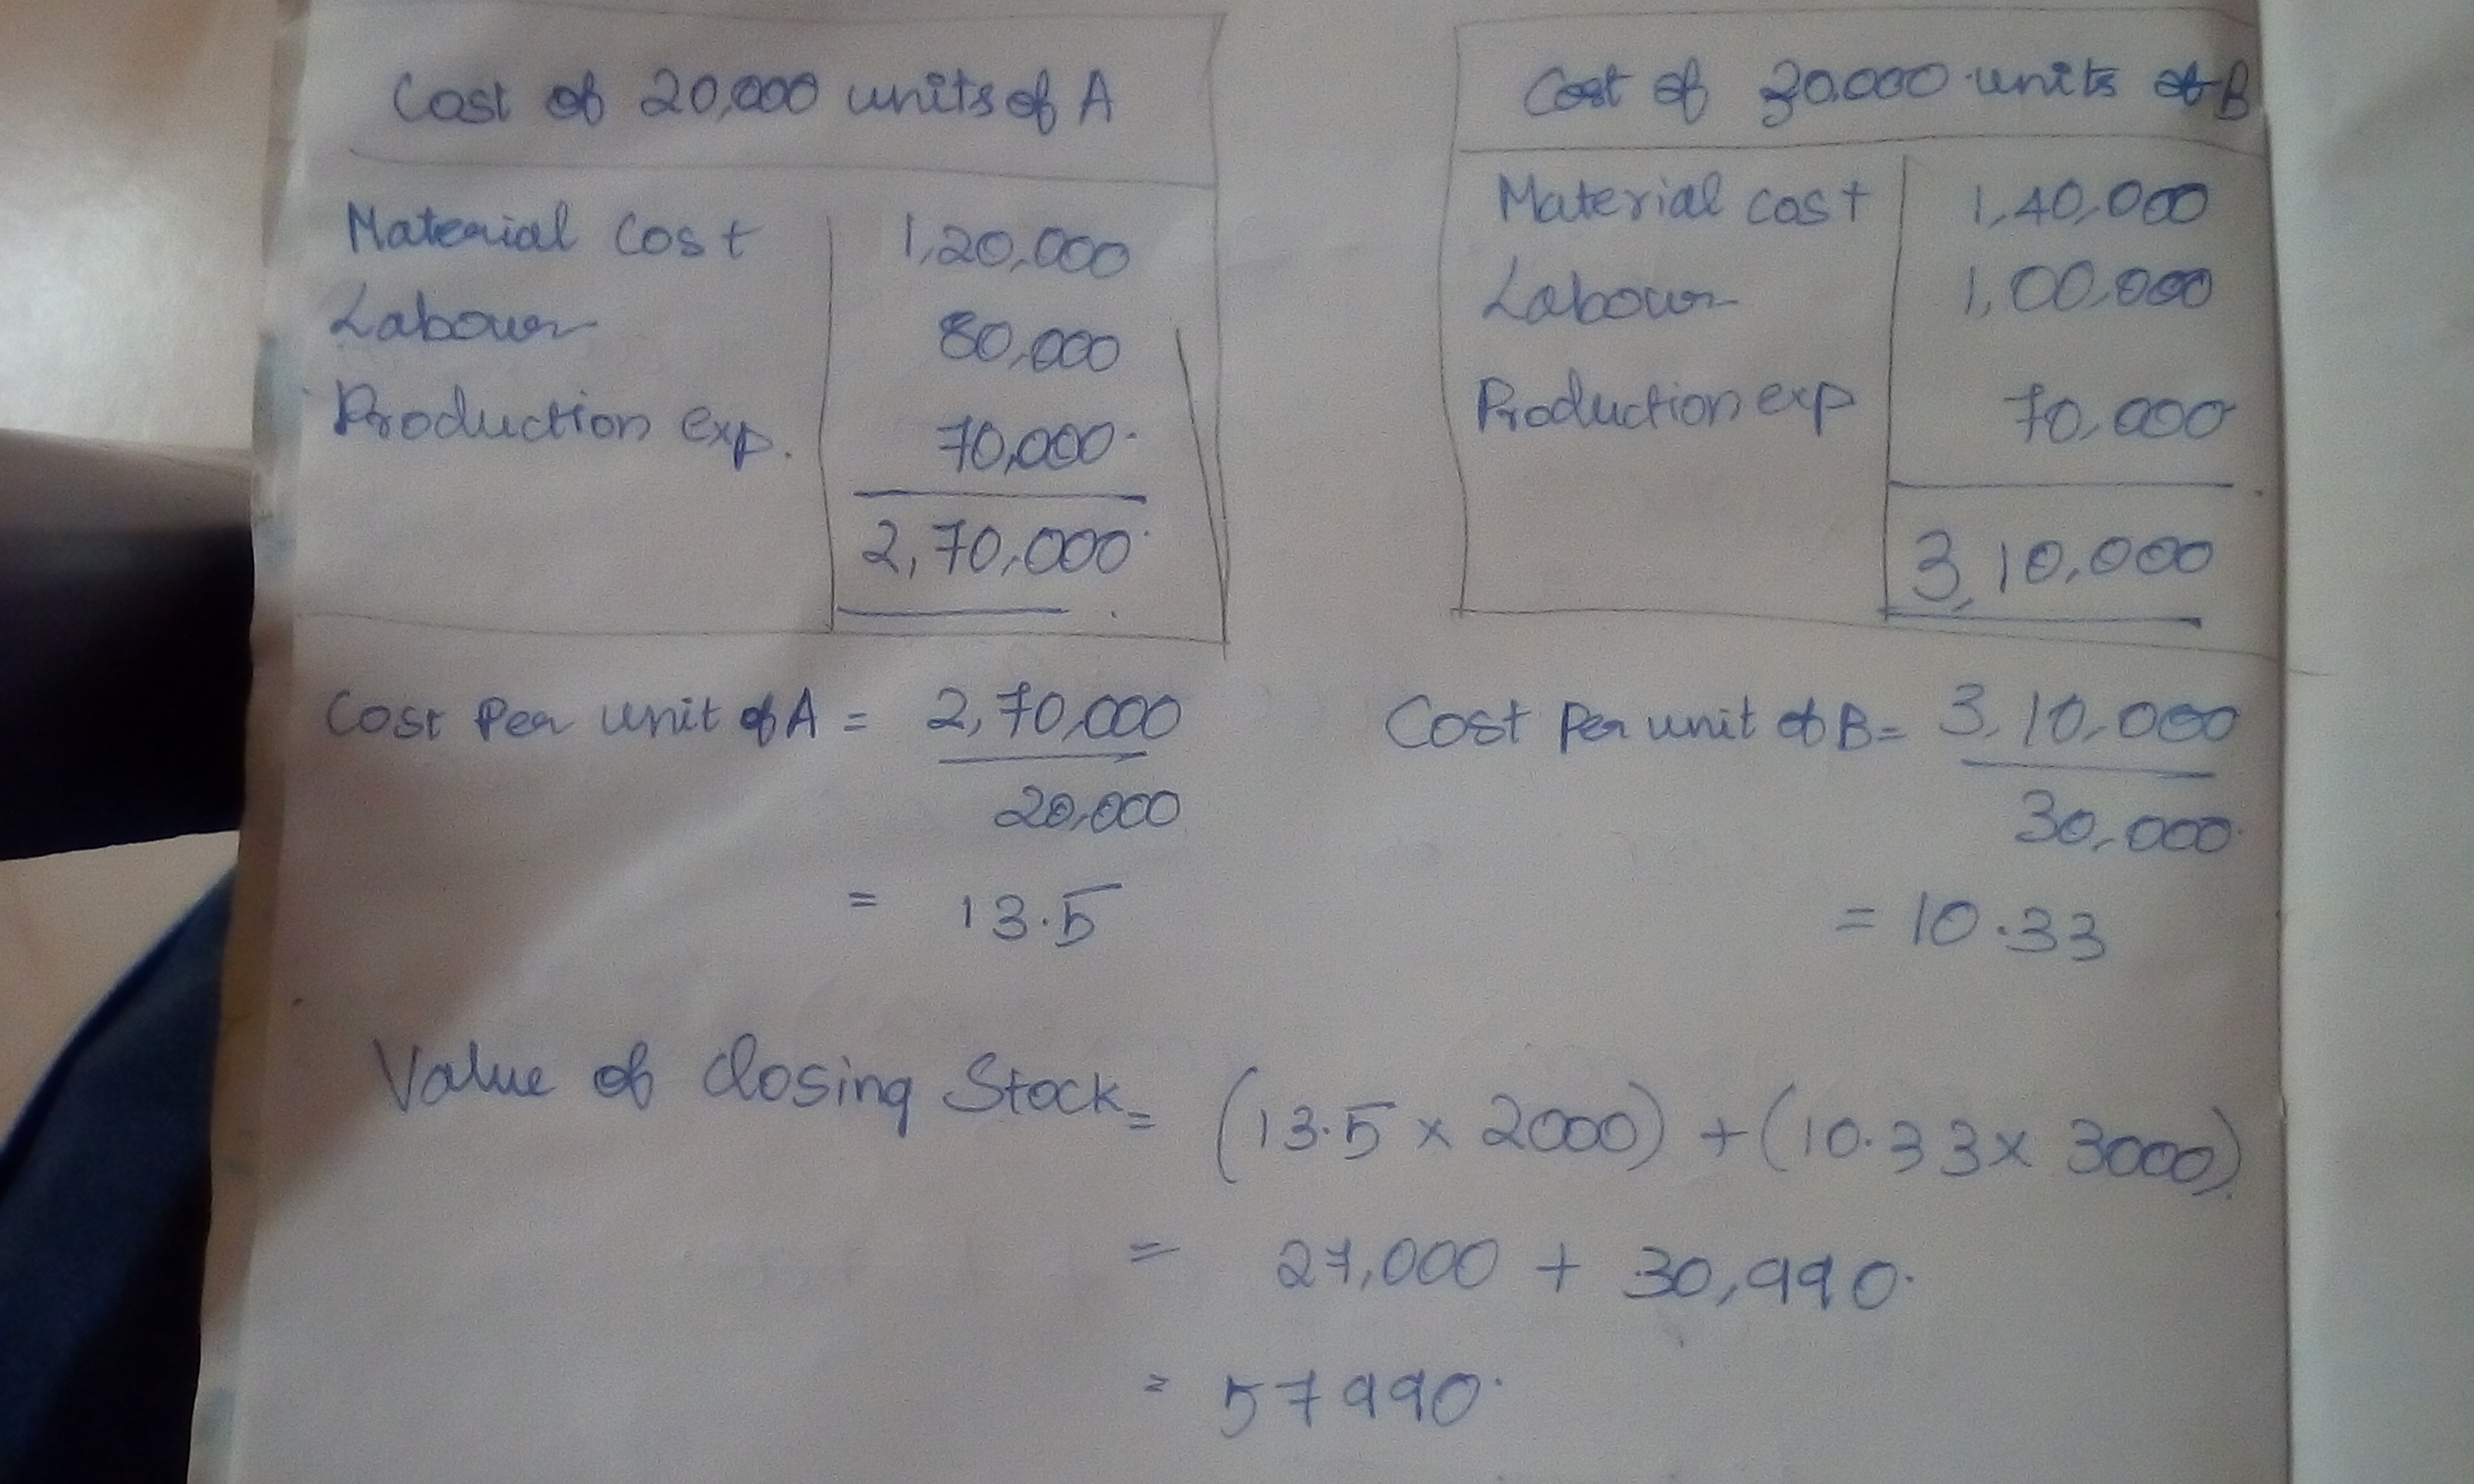 Cost of 20,000 units of A
Material Cost 1,20,000
Labour 80,000
Production exp. 70,000
2,70,000
Cost per unit of A = 2,70,000
20,000
= 13.5
Cost of 30,000 units of B
Material cost 1,40,000
Labour 1,00,000
Production exp 70,000
3,10,000
Cost per unit of B = 3,10,000
30,000
= 10.33
Value of Closing Stock = (13.5 x 2000) + (10.33 x 3000)
= 27,000 + 30,990
= 57990